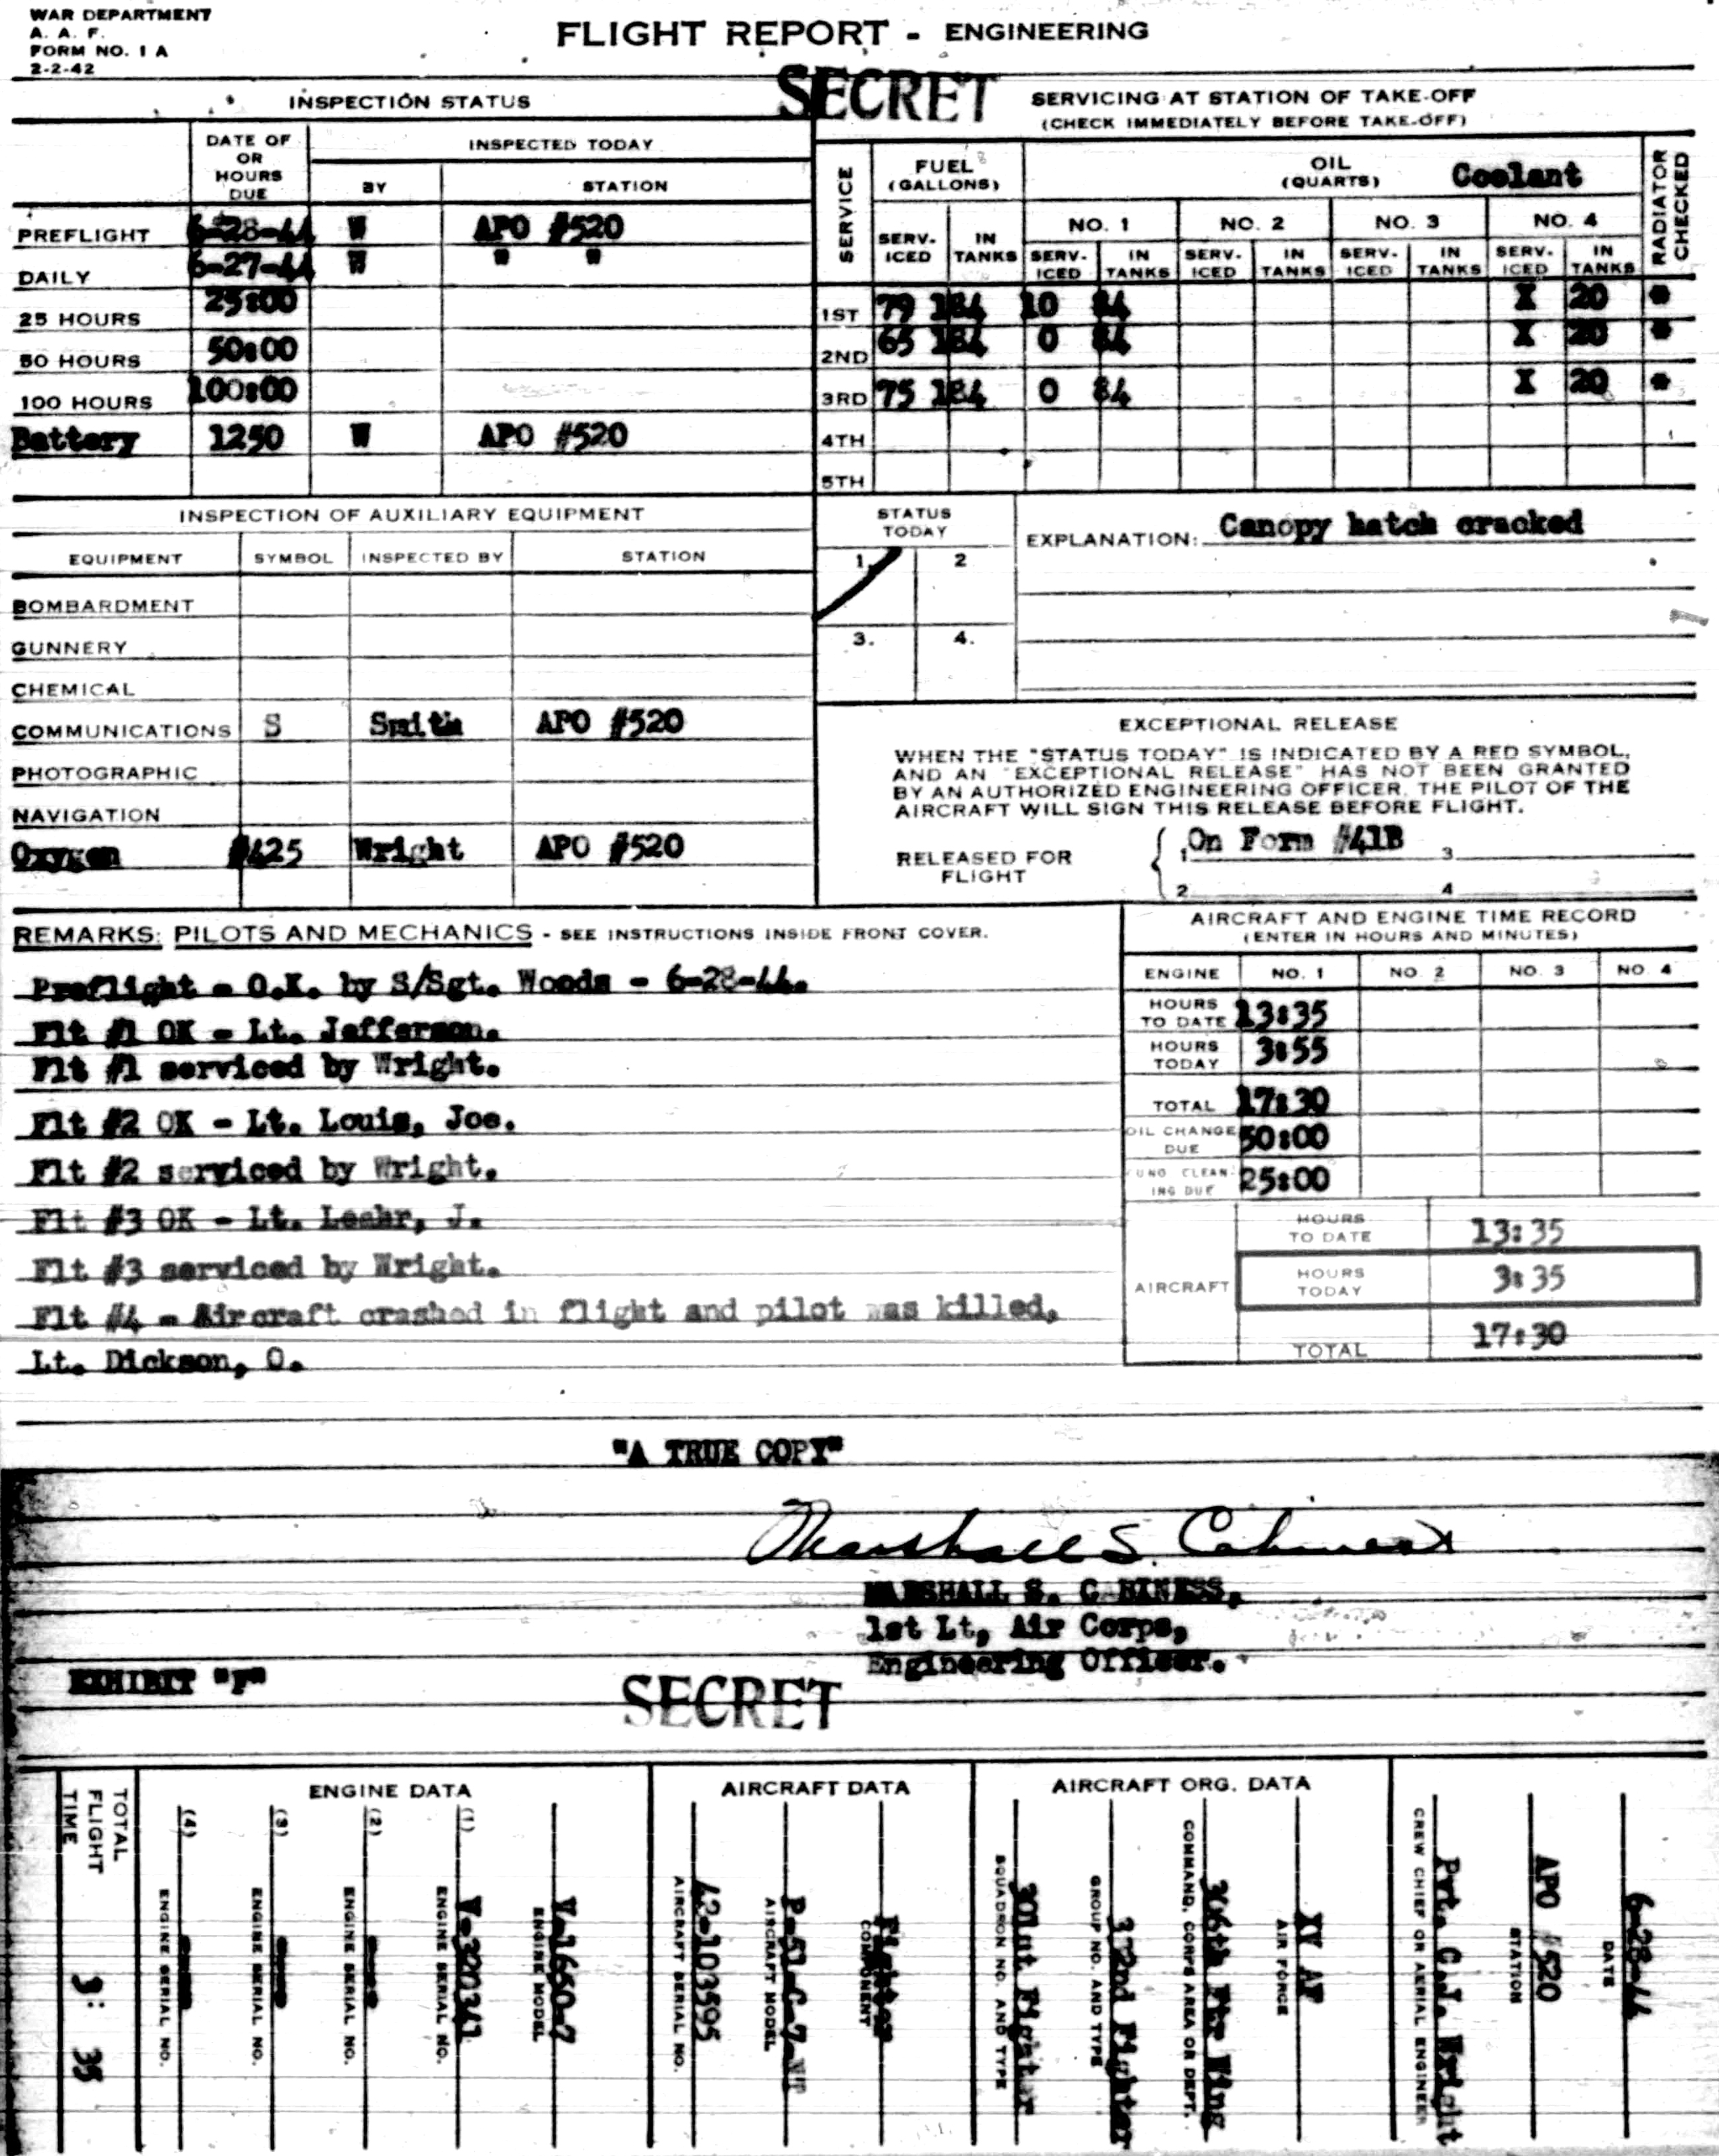 WAR DEPARTMENT
A. A. F.
FORM NO. 1 A
2-2-42
FLIGHT REPORT - ENGINEERING
SECRET
INSPECTION STATUS
DATE OF OR HOURS DUE
INSPECTED TODAY
BY STATION
PREFLIGHT 6-28-44 W APO #520
DAILY 6-27-44 W " "
25 HOURS 25:00
50 HOURS 50:00
100 HOURS 100:00
Battery 1250 W APO #520
SERVICING AT STATION OF TAKE-OFF
(CHECK IMMEDIATELY BEFORE TAKE-OFF)
SERVICE
FUEL (GALLONS)
OIL (QUARTS) Coolant
RADIATOR CHECKED
NO. 1 NO. 2 NO. 3 NO. 4
SERV-ICED IN TANKS SERV-ICED IN TANKS SERV-ICED IN TANKS SERV-ICED IN TANKS SERV-ICED IN TANKS
1ST 79 184 10 84 X 20 *
2ND 65 184 0 84 X 20 *
3RD 75 184 0 84 X 20 *
4TH
5TH
INSPECTION OF AUXILIARY EQUIPMENT
EQUIPMENT SYMBOL INSPECTED BY STATION
BOMBARDMENT
GUNNERY
CHEMICAL
COMMUNICATIONS S Smith APO #520
PHOTOGRAPHIC
NAVIGATION
Oxygen #425 Wright APO #520
STATUS TODAY
1. 2
3. 4.
EXPLANATION: Canopy hatch cracked
EXCEPTIONAL RELEASE
WHEN THE "STATUS TODAY" IS INDICATED BY A RED SYMBOL,
AND AN "EXCEPTIONAL RELEASE" HAS NOT BEEN GRANTED
BY AN AUTHORIZED ENGINEERING OFFICER, THE PILOT OF THE
AIRCRAFT WILL SIGN THIS RELEASE BEFORE FLIGHT.
RELEASED FOR FLIGHT
1 On Form #41B 3
2 4
REMARKS: PILOTS AND MECHANICS - SEE INSTRUCTIONS INSIDE FRONT COVER.
Preflight - O.K. by S/Sgt. Woods - 6-28-44.
Flt #1 OK - Lt. Jefferson.
Flt #1 serviced by Wright.
Flt #2 OK - Lt. Louis, Joe.
Flt #2 serviced by Wright.
Flt #3 OK - Lt. Leahr, J.
Flt #3 serviced by Wright.
Flt #4 - Aircraft crashed in flight and pilot was killed,
Lt. Dickson, O.
AIRCRAFT AND ENGINE TIME RECORD
(ENTER IN HOURS AND MINUTES)
ENGINE NO. 1 NO. 2 NO. 3 NO. 4
HOURS TO DATE 13:35
HOURS TODAY 3:55
TOTAL 17:30
OIL CHANGE DUE 50:00
CLEAN-ING DUE 25:00
AIRCRAFT
HOURS TO DATE 13:35
HOURS TODAY 3:35
TOTAL 17:30
"A TRUE COPY"
Marshall S. Cabiness
MARSHALL S. CABINESS,
1st Lt, Air Corps,
Engineering Officer.
EXHIBIT "F"
SECRET
TOTAL FLIGHT TIME 3:35
ENGINE DATA
(4) ENGINE SERIAL NO.
(3) ENGINE SERIAL NO.
(2) ENGINE SERIAL NO.
(1) V-320341 ENGINE SERIAL NO.
V-1650-7 ENGINE MODEL
AIRCRAFT DATA
42-103595 AIRCRAFT SERIAL NO.
P-51-C-7-NT AIRCRAFT MODEL
Fighter COMPONENT
AIRCRAFT ORG. DATA
301st Fighter SQUADRON NO. AND TYPE
332nd Fighter GROUP NO. AND TYPE
306th Ftr Wing COMMAND, CORPS AREA OR DEPT.
XV AF AIR FORCE
Pvt. Wright CREW CHIEF OR AERIAL ENGINEER
APO #520 STATION
6-28-44 DATE